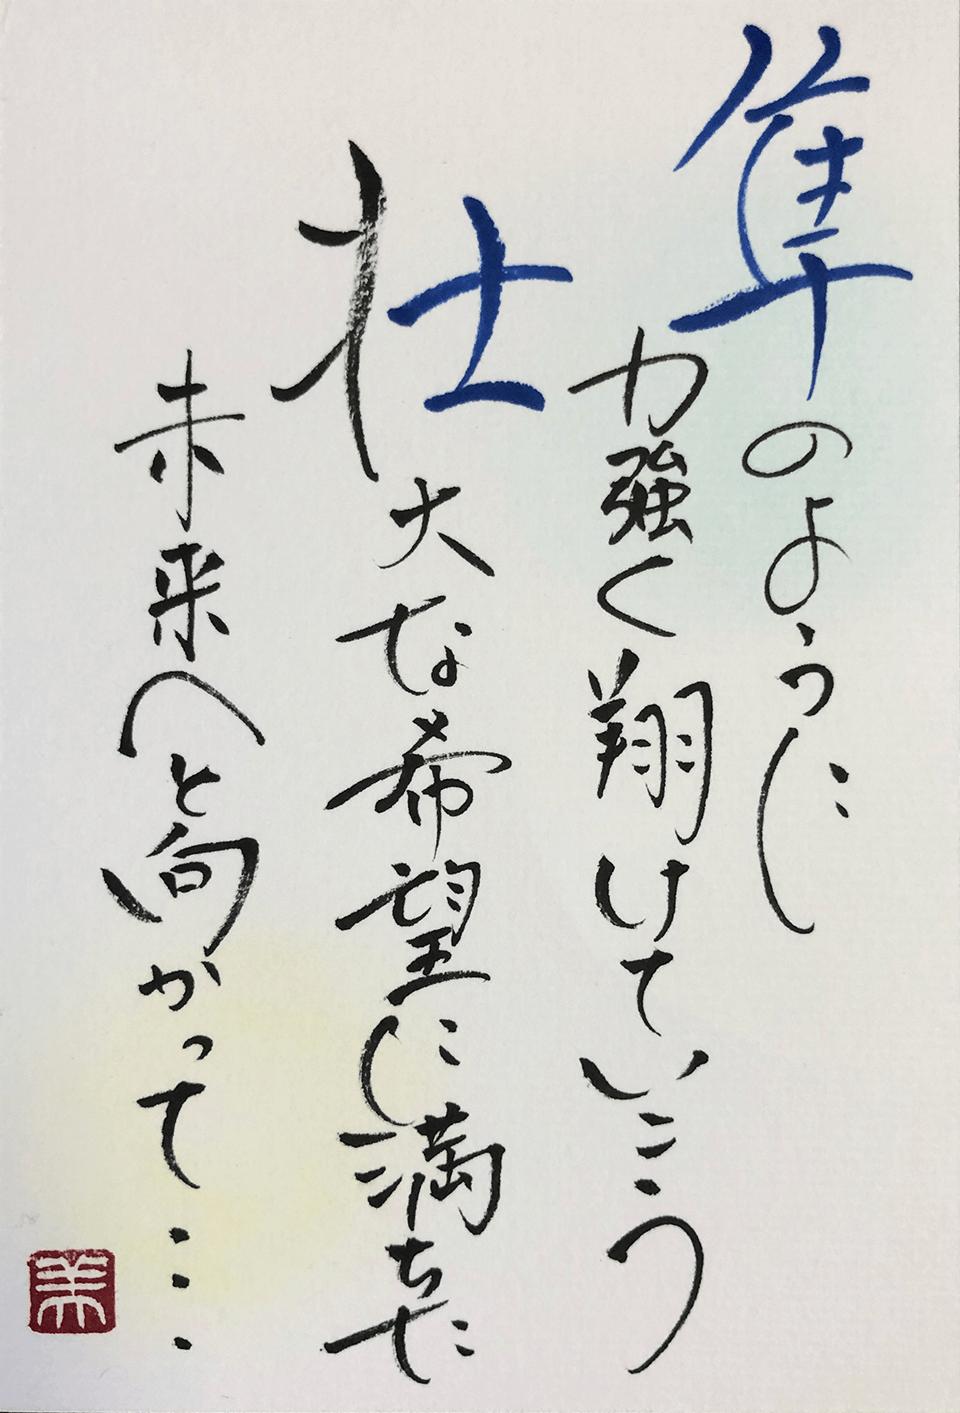 隼のように
力強く翔けていこう
壮大な希望に満ちた
未来へと向かって・・・
美